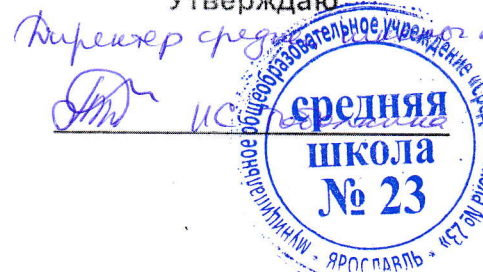 Утверждаю
Директор средне
И.С.
муниципальное общеобразовательное учреждение «Средняя школа № 23»
средняя
школа
№ 23
* ЯРОСЛАВЛЬ *